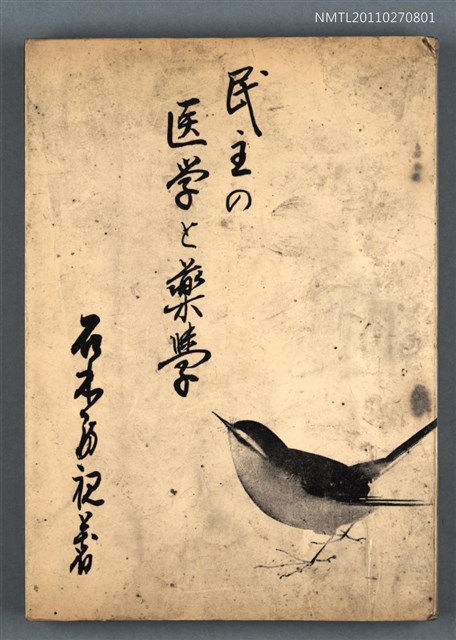 NMTL20110270801
民主の
医学と薬學
石木 視著